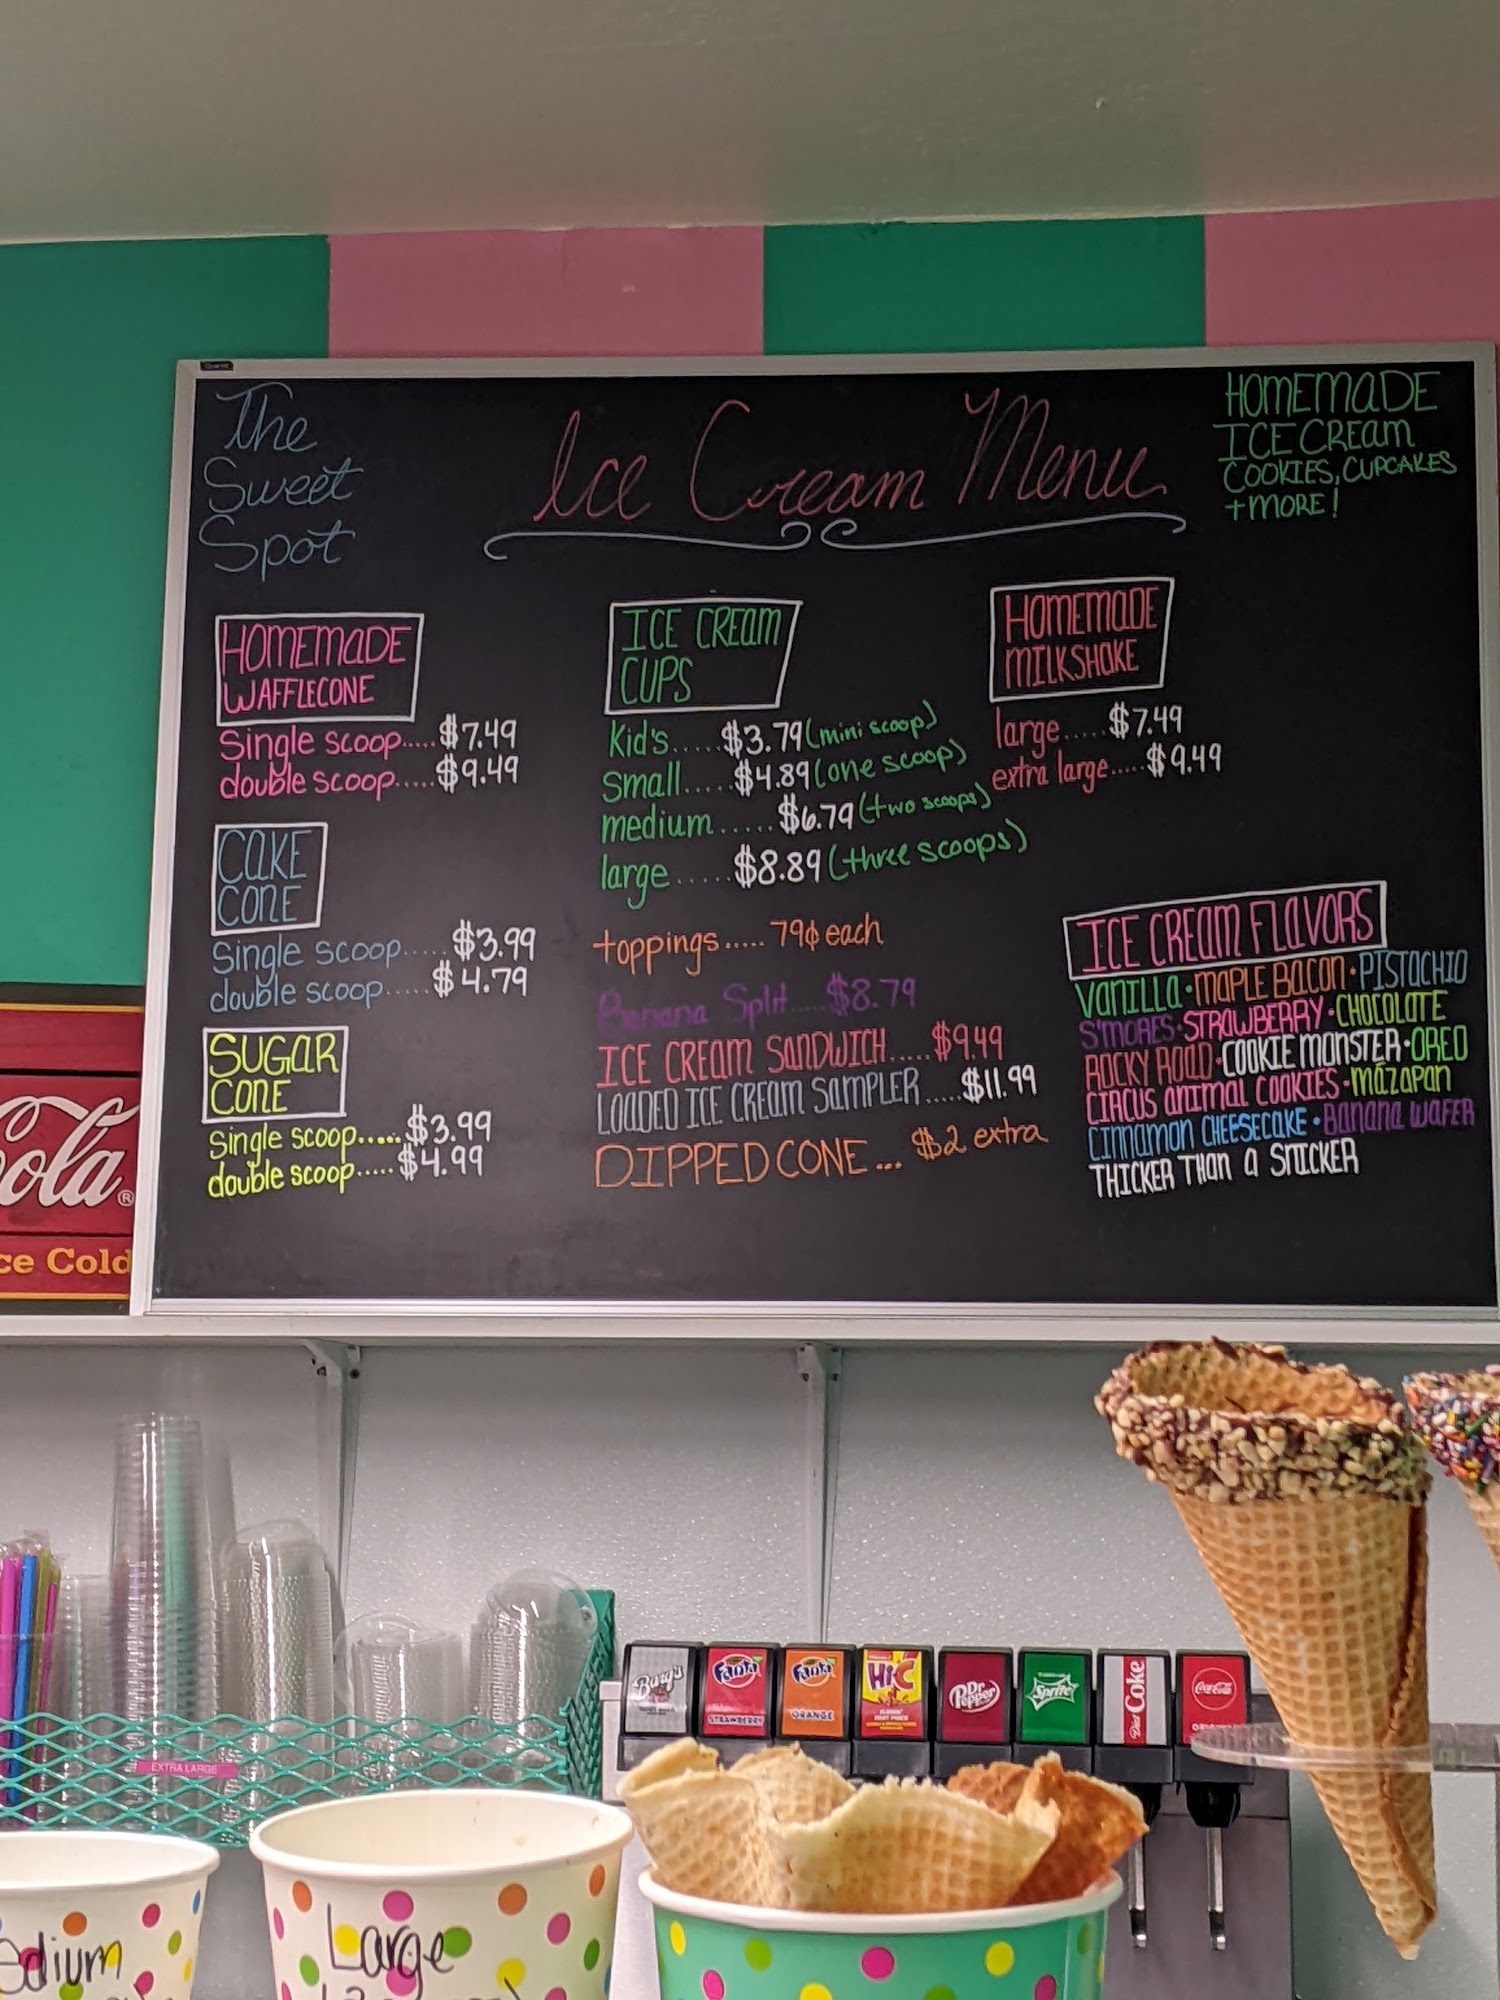 The
Sweet
Spot
Ice Cream Menu
HOMEMADE
ICE CREAM
COOKIES, CUPCAKES
+MORE!
HOMEMADE
WAFFLECONE
Single scoop.....$7.49
double scoop.....$9.49
CAKE
CONE
Single scoop.....$3.99
double scoop.....$4.79
SUGAR
CONE
Single scoop.....$3.99
double scoop.....$4.99
ICE CREAM
CUPS
Kid's.....$3.79(mini scoop)
Small.....$4.89(one scoop)
medium.....$6.79(two scoops)
large.....$8.89(three scoops)
toppings.....79¢ each
Banana Split....$8.79
ICE CREAM SANDWICH.....$9.49
LOADED ICE CREAM SAMPLER.....$11.99
DIPPED CONE...$2 extra
HOMEMADE
MILKSHAKE
large.....$7.49
extra large.....$9.49
ICE CREAM FLAVORS
VANILLA·MAPLE BACON·PISTACHIO
S'MORES·STRAWBERRY·CHOCOLATE
ROCKY ROAD·COOKIE MONSTER·OREO
CIRCUS ANIMAL COOKIES·MÁZAPAN
CINNAMON CHEESECAKE·BANANA WAFER
THICKER THAN A SNICKER
ola®
ce Cold
EXTRA LARGE
Barq's
Fanta
STRAWBERRY
Fanta
ORANGE
Hi-C
Dr Pepper
Sprite
Diet Coke
Coca-Cola
edium
Large